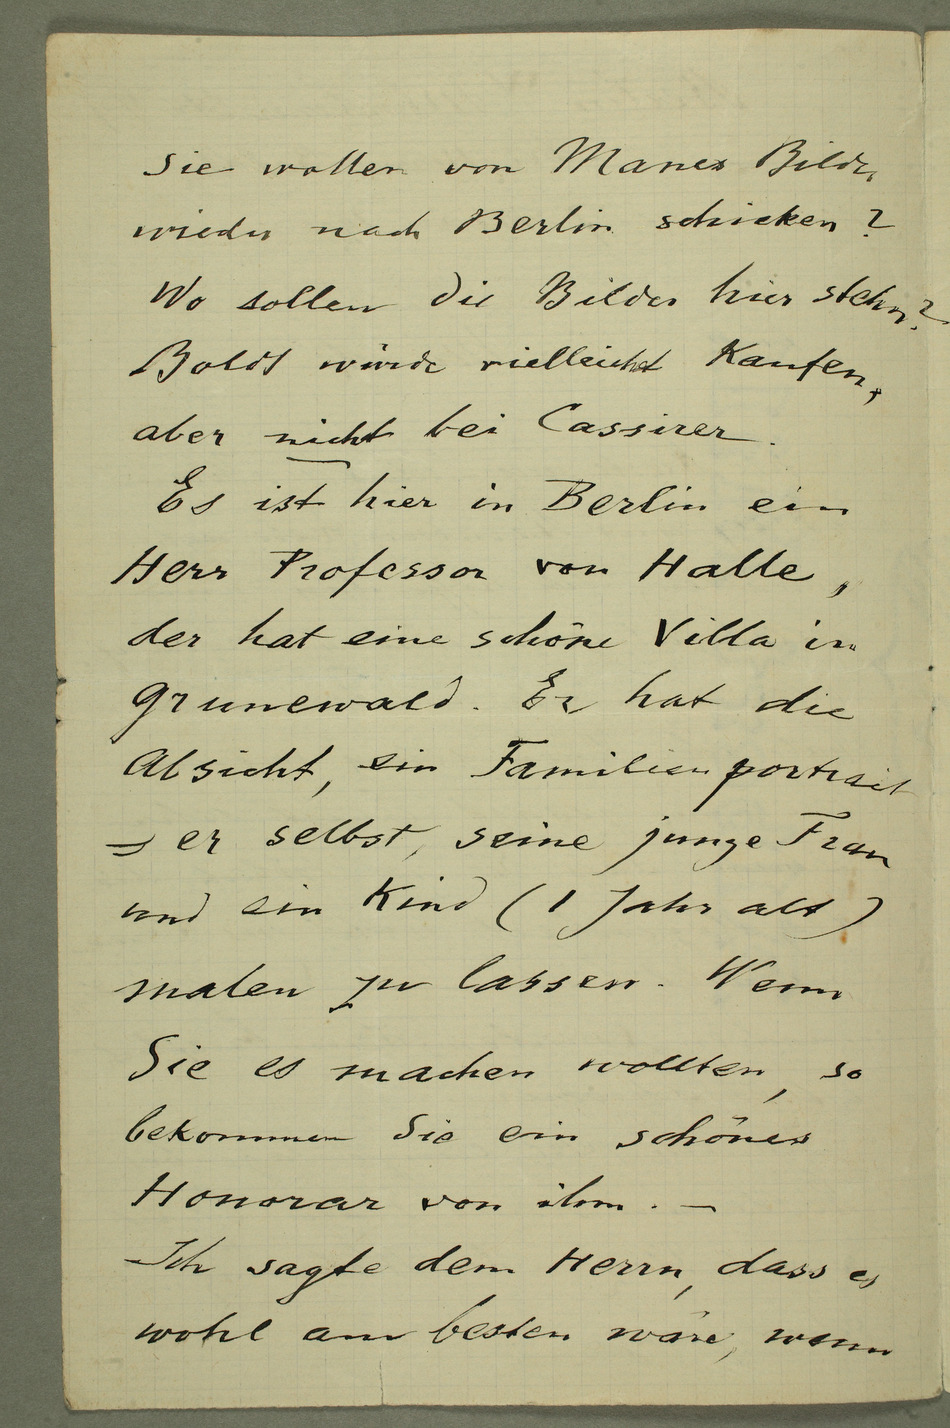 Sie wollen von Manes Bilder
wieder nach Berlin schicken?
Wo sollen die Bilder hier stehn?
Boldt würde vielleicht kaufen,
aber nicht bei Cassirer.
Es ist hier in Berlin ein
Herr Professor von Halle,
der hat eine schöne Villa in
Grunewald. Er hat die
Absicht, ein Familienportrait
= er selbst, seine junge Frau
und ein Kind (1 Jahr alt)
malen zu lassen. Wenn
Sie es machen wollten, so
bekommen Sie ein schönes
Honorar von ihm. —
Ich sagte dem Herrn, dass es
wohl am besten wäre, wenn